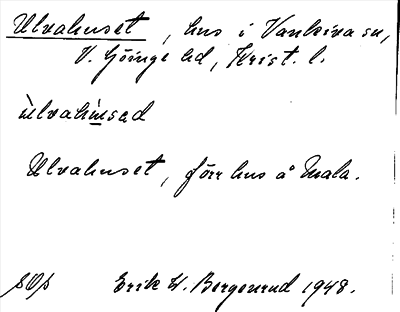 Ulvahuset, hus i Vankiva sn,
V. Göinge hd, Krist. l.
ùlvahúsad
Ulvahuset, förr hus å Mala.
Erik W. Bergenrud 1948.